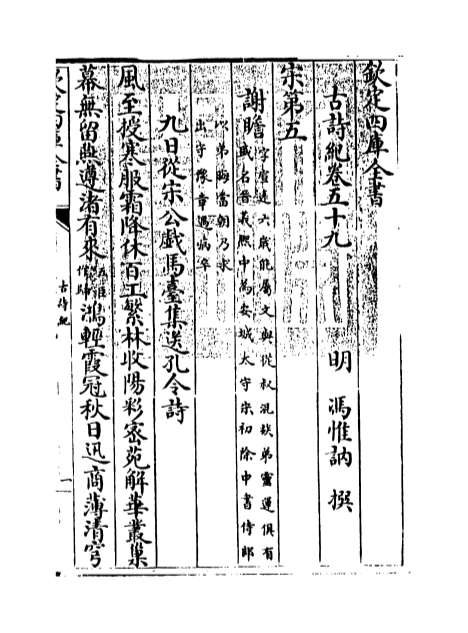 欽定四庫全書
古詩紀卷五十九
明 馮惟訥 撰
宋第五
謝瞻字宣遠六歲能屬文與從叔混族弟靈運俱有
盛名晉義熙中為安城太守宋初除中書侍郎
以弟晦當朝乃求
出守豫章遇病卒
九日從宋公戲馬臺集送孔令詩
風至授寒服霜降休百工繁林收陽彩密苑解華叢巢
幕無留燕遵渚有來鴻輕霞冠秋日迅商薄清穹
欽定四庫全書
古詩紀
一